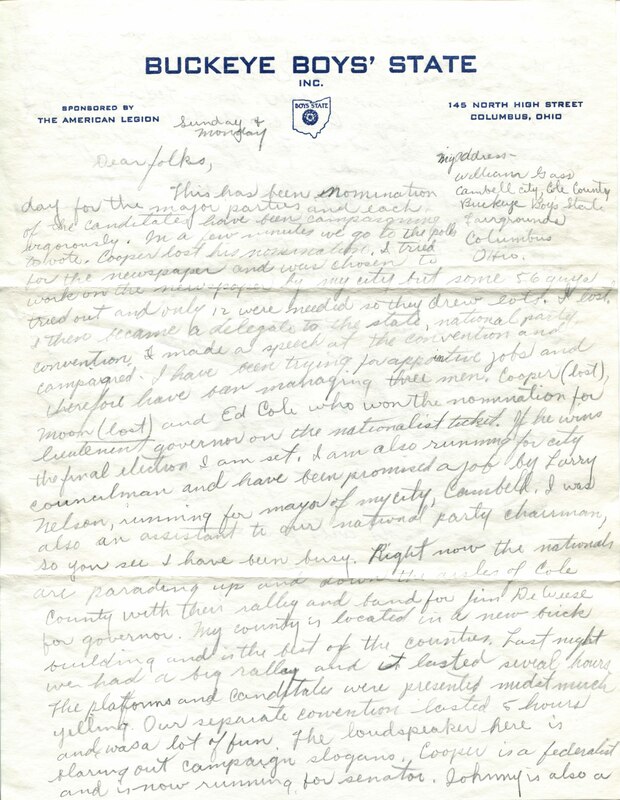 BUCKEYE BOYS' STATE
INC.
SPONSORED BY
THE AMERICAN LEGION
BOYS STATE
145 NORTH HIGH STREET
COLUMBUS, OHIO
Sunday &
Monday
My address
William Gass
Cambell city, Cole County
Buckeye Boys State
Fairgrounds
Columbus
Ohio.
Dear folks,
This has been nomination
day for the major parties and each
of the canditates have been campaigning
vigorously. In a few minutes we go to the polls
to vote. Cooper lost his nomination. I tried
for the newspaper and was chosen to
work on the newspaper by my city but some 56 guys
tried out and only 12 were needed so they drew lots. I lost.
I then became a delegate to the state, national party
convention. I made a speech at the convention and
campaigned. I have been trying for appoitive jobs and
therefore have ban managing three men. Cooper (lost),
Moon (lost) and Ed Cole who won the nomination for
lieutenent governor on the nationalist ticket. If he wins
the final election I am set. I am also running for city
councilman and have been promised a job by Larry
Nelson, running for mayor of my city, Cambell. I was
also an assistant to our national party chairman,
so you see I have been busy. Right now the nationals
are parading up and down the aisles of Cole
County with their rally and band for Jim DeWeese
for governor. My county is located in a new brick
building and is the best of the counties. Last night
we had a big rally and it lasted sevial hours
The platforms and canditates were presented midst much
yelling. Our separate covention lasted 5 hours
and was a lot of fun. The loudspeaker here is
blaring out campaign slogans. Cooper is a federalist
and is now running for senator. Johnny is also a